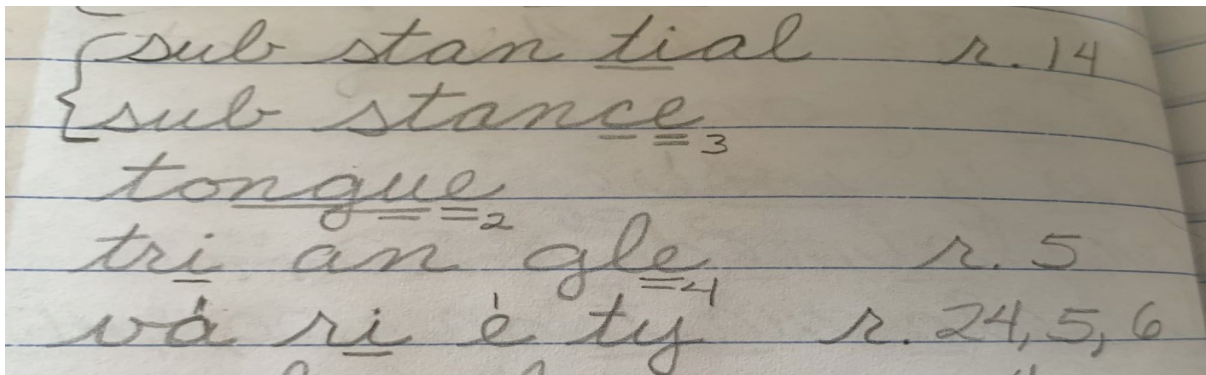 sub stan tial r. 14
sub stance3
tongue2
tri an gle4 r. 5
vá ri é ty r. 24, 5, 6